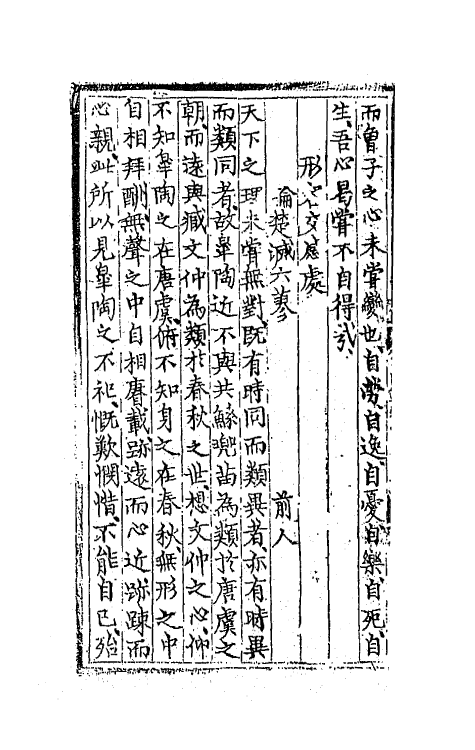 而曾子之心未嘗變也自勞自逸自憂自樂自死自
生吾心曷嘗不自得哉
形心交感處
論楚滅六蓼 前人
天下之理未嘗無對既有時同而類異者亦有時異
而類同者故皐陶近不與共鯀兜苗為類於唐虞之
朝而遠與臧文仲為類於春秋之世想文仲之心仰
不知皐陶之在唐虞俯不知身之在春秋無形之中
自相拜酬無聲之中自相賡載跡遠而心近跡踈而
心親此所以見皐陶之不祀慨歎憫惜不能自已殆